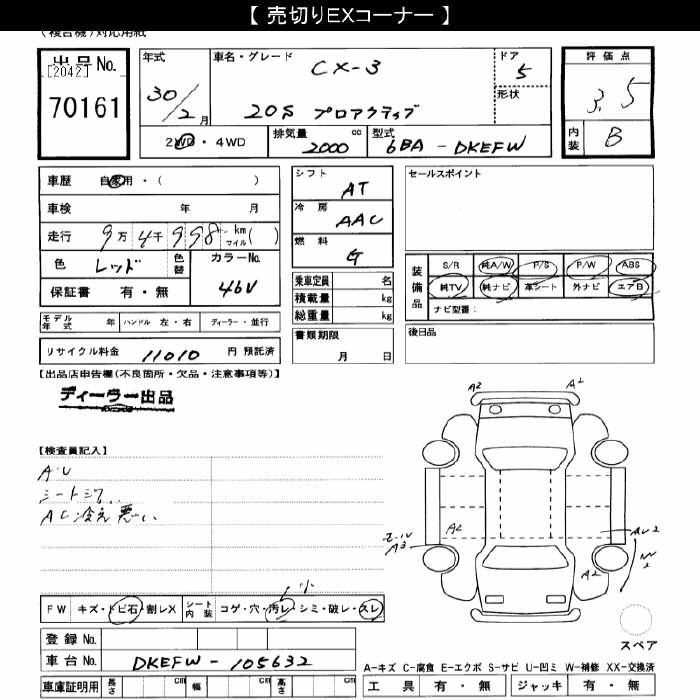 【 売切りEXコーナー 】
(複合機)対応用紙
出品No.
[2042]
70161
年式
30/2月
車名・グレード
CX-3
20S プロアクティブ
ドア
5
形状
2WD・4WD
排気量
2000 cc
型式
6BA-DKEFW
評価点
3.5
内装
B
車歴 自家用・( )
車検 年 月
走行 9万4千998 km マイル( )
色 レッド
色替
カラーNo.
46V
保証書 有・無
シフト
AT
冷房
AAC
燃料
G
乗車定員 名
積載量 kg
総重量 kg
セールスポイント
装備品
S/R 純A/W P/S P/W ABS
純TV 純ナビ 革シート 外ナビ エアB
ナビ型番:
モデル年式 年 ハンドル 左・右 ディーラー・並行
リサイクル料金 11010 円 預託済
書類期限
月 日
後日品
【出品店申告欄(不良箇所・欠品・注意事項等)】
ディーラー出品
【検査員記入】
AU
AC冷え悪い
A2 A1
A2
モール
A3
A2
スペア
小
FW キズ・トビ石・割レX
シート内装 コゲ・穴・汚レ・シミ・破レ・スレ
登録No.
車台No. DKEFW-105632
車庫証明用 長さ cm 幅 cm 高さ cm
A-キズ C-腐食 E-エクボ S-サビ U-凹ミ W-補修 XX-交換済
工具 有・無 ジャッキ 有・無